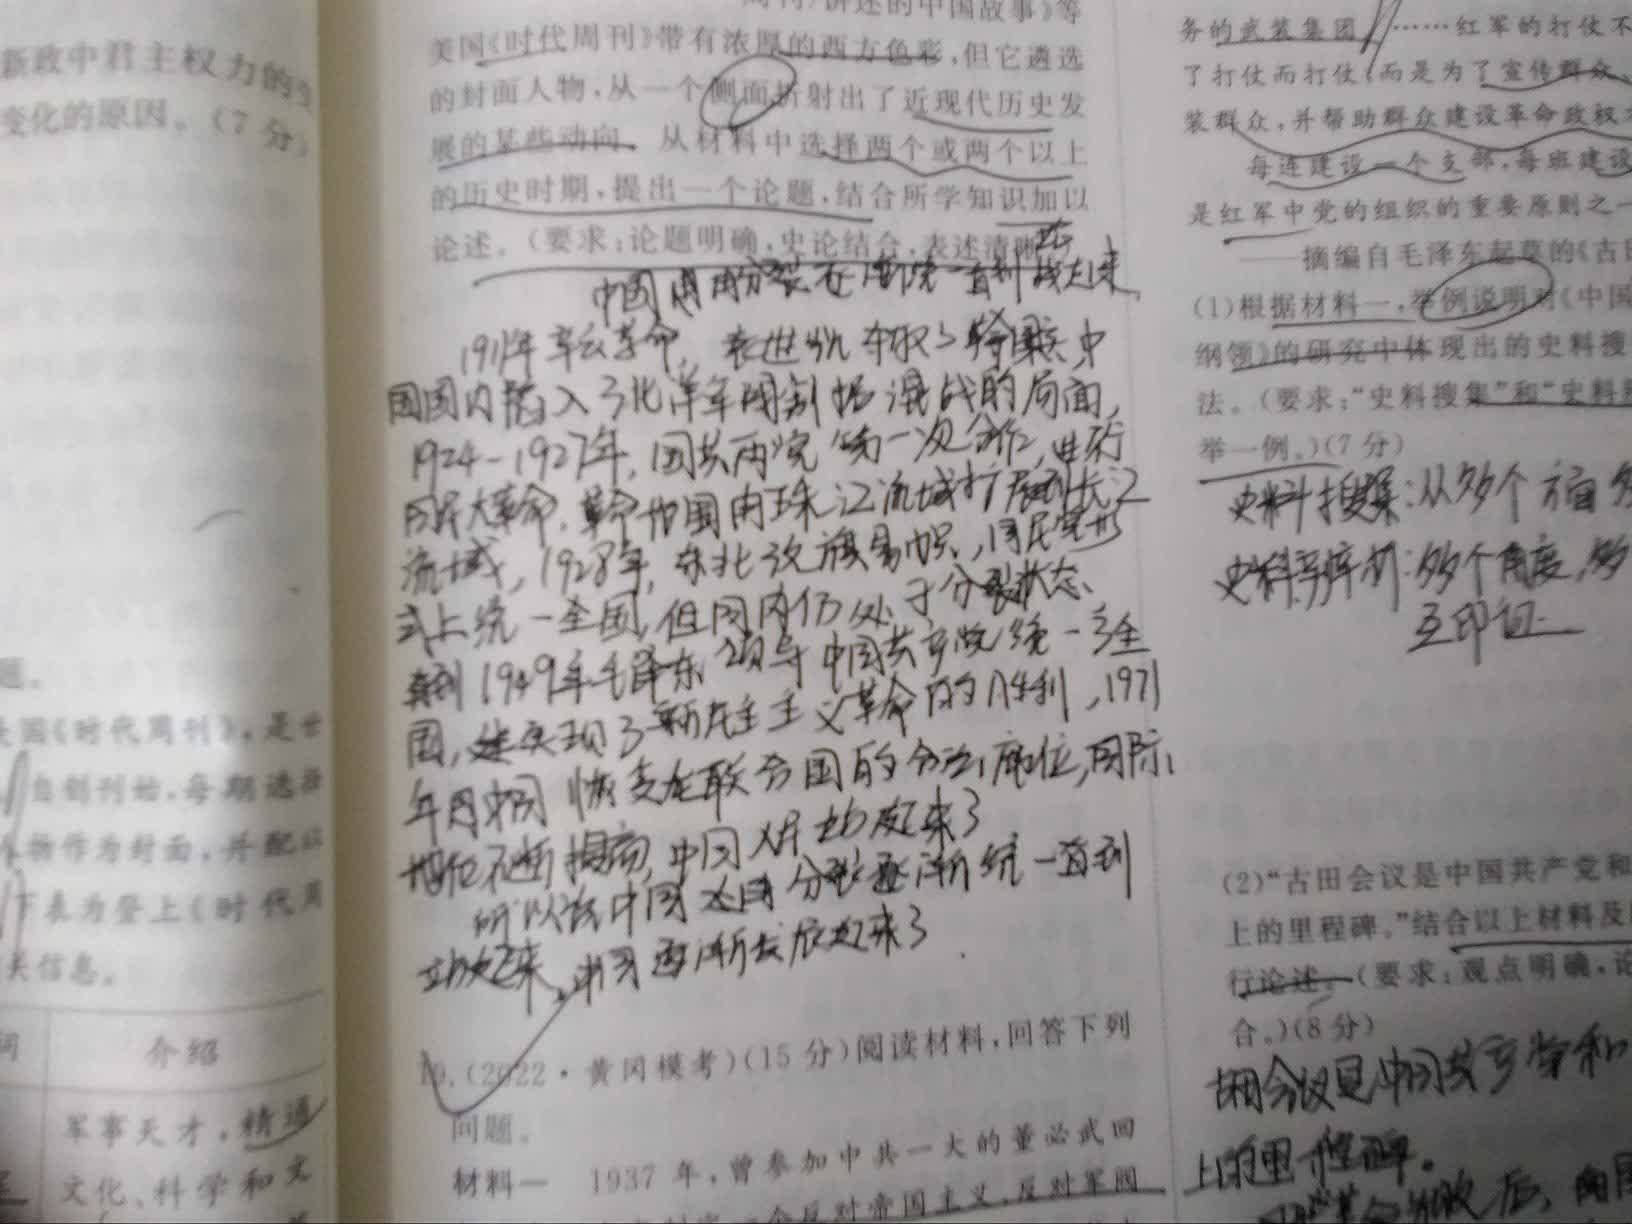 新政中君主权力的变
变化的原因。(7分)
题。
美国《时代周刊》,是世
自创刊始,每期选择
人物作为封面,并配以
下表为登上《时代周
关信息。
词 介绍
军事天才,精通
文化、科学和文
周刊》讲述的中国故事》等
美国《时代周刊》带有浓厚的西方色彩,但它遴选
的封面人物,从一个侧面折射出了近现代历史发
展的某些动向。从材料中选择两个或两个以上
的历史时期,提出一个论题,结合所学知识加以
论述。(要求:论题明确,史论结合,表述清晰
中国由分裂逐渐统一直到站起来
1911年辛亥革命,袁世凯夺取了 中
国国内陷入了北洋军阀割据混战的局面,
1924-1927年,国共两党第一次合作,进行
国民大革命,革命范围由珠江流域扩展到长江
流域,1928年,东北改旗易帜,国民党形
式上统一全国,但国内仍处于分裂状态、
直到1949年毛泽东领导中国共产党统一了全
国,实现了新民主主义革命的胜利,1971
年中国恢复在联合国的合法席位,国际
地位不断提高,中国站起来了
所以说中国由分裂逐渐统一直到
站起来,中国逐渐发展起来了.
19.(2022·黄冈模考)(15分)阅读材料,回答下列
问题。
材料一 1937年,曾参加中共一大的董必武回
个反对帝国主义,反对军阀
务的武装集团……红军的打仗不
了打仗而打仗,而是为了宣传群众、
装群众,并帮助群众建设革命政权才
每连建设一个支部,每班建设
是红军中党的组织的重要原则之一
——摘编自毛泽东起草的《古田
(1)根据材料一,举例说明对《中国
纲领》的研究中体现出的史料搜
法。(要求:“史料搜集”和“史料辨
举一例。)(7分)
史料搜集:从多个方面
史料辨析:多个角度,多
互印证
(2)“古田会议是中国共产党和
上的里程碑。”结合以上材料及
行论述。(要求:观点明确,论
合。)(8分)
古田会议是中国共产党和
上的里程碑.
革命失败后,